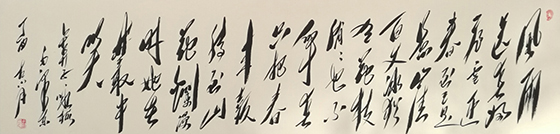 风雨
送春归
飞雪迎
春到已是
悬崖
百丈冰犹
有花枝
俏俏也不
争春
只把春
来报
待到山
花烂漫
时她在
丛中
笑
卜算子咏梅
丁酉